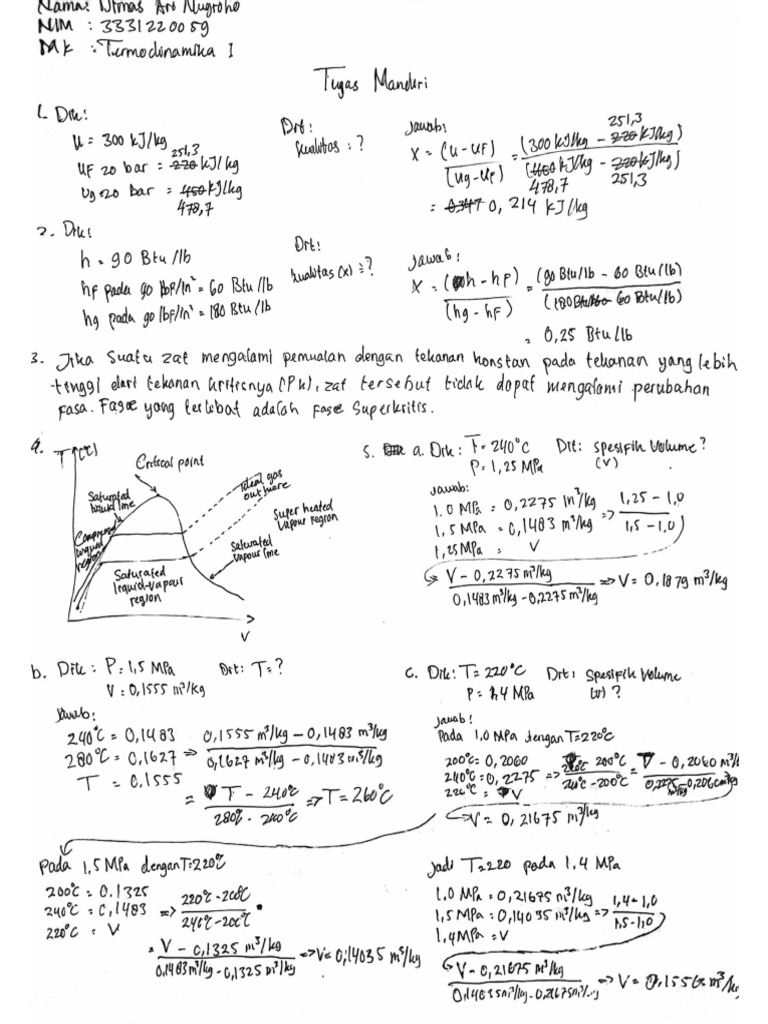 Nama: Dimas Ari Nugroho
NIM : 3331220059
MK : Termodinamika I
Tugas Mandiri
1. Dik:
u = 300 kJ/kg
251,3
uf 20 bar = 220 kJ/kg
ug 20 bar = 460 kJ/kg
478,7
Drt:
kualitas : ?
Jawab:
251,3
x = (u - uf) / (ug - uf) = (300 kJ/kg - 220 kJ/kg) / (460 kJ/kg - 220 kJ/kg)
478,7 251,3
= 0,347 0,214 kJ/kg
2. Dik:
h = 90 Btu/lb
hf pada 90 lbf/in² = 60 Btu/lb
hg pada 90 lbf/in² = 180 Btu/lb
Drt:
kualitas (x) = ?
Jawab:
x = (h - hf) / (hg - hf) = (90 Btu/lb - 60 Btu/lb) / (180 Btu/lb - 60 Btu/lb)
= 0,25 Btu/lb
3. Jika suatu zat mengalami pemuaian dengan tekanan konstan pada tekanan yang lebih
tinggi dari tekanan kritisnya (Pk), zat tersebut tidak dapat mengalami perubahan
fasa. Fase yang terlibat adalah fase superkritis.
4. T (°C)
Critical point
Saturated liquid line
Compressed liquid region
Saturated liquid-vapour region
Ideal gas
Super heated vapour region
Saturated vapour line
V
5. a. Dik : T = 240°C
P = 1,25 MPa
Dit: spesifik volume ?
(v)
Jawab:
1.0 MPa = 0,2275 m³/kg
1,5 MPa = 0,1483 m³/kg => 1,25 - 1,0 / 1,5 - 1,0
1,25 MPa = V
V - 0,2275 m³/kg / 0,1483 m³/kg - 0,2275 m³/kg => V = 0,1879 m³/kg
b. Dik : P = 1,5 MPa
V = 0,1555 m³/kg
Drt: T = ?
Jawab:
240°C = 0,1483
280°C = 0,1627 => 0,1555 m³/kg - 0,1483 m³/kg / 0,1627 m³/kg - 0,1483 m³/kg
T = 0,1555
= T - 240°C / 280°C - 240°C => T = 260°C
c. Dik: T = 220°C
P = 1,4 MPa
Drt: Spesifik Volume
(v) ?
Jawab:
Pada 1,0 MPa dengan T=220°C
200°C = 0,2060
240°C = 0,2275 => 220°C - 200°C / 240°C - 200°C = V - 0,2060 m³/k / 0,2275 - 0,206 m³/kg
220°C = V
V = 0,21675 m³/kg
Pada 1,5 MPa dengan T=220°C
200°C = 0.1325
240°C = 0,1483 => 220°C - 200°C / 240°C - 200°C
220°C = V
= V - 0,1325 m³/kg / 0,1483 m³/kg - 0,1325 m³/kg => V = 0,14035 m³/kg
Jadi T=220 pada 1,4 MPa
1.0 MPa = 0,21675 m³/kg
1,5 MPa = 0,14035 m³/kg => 1,4 - 1,0 / 1,5 - 1,0
1,4 MPa = V
V - 0,21675 m³/kg / 0,14035 m³/kg - 0,21675 m³/kg => V = 0,1556 m³/kg